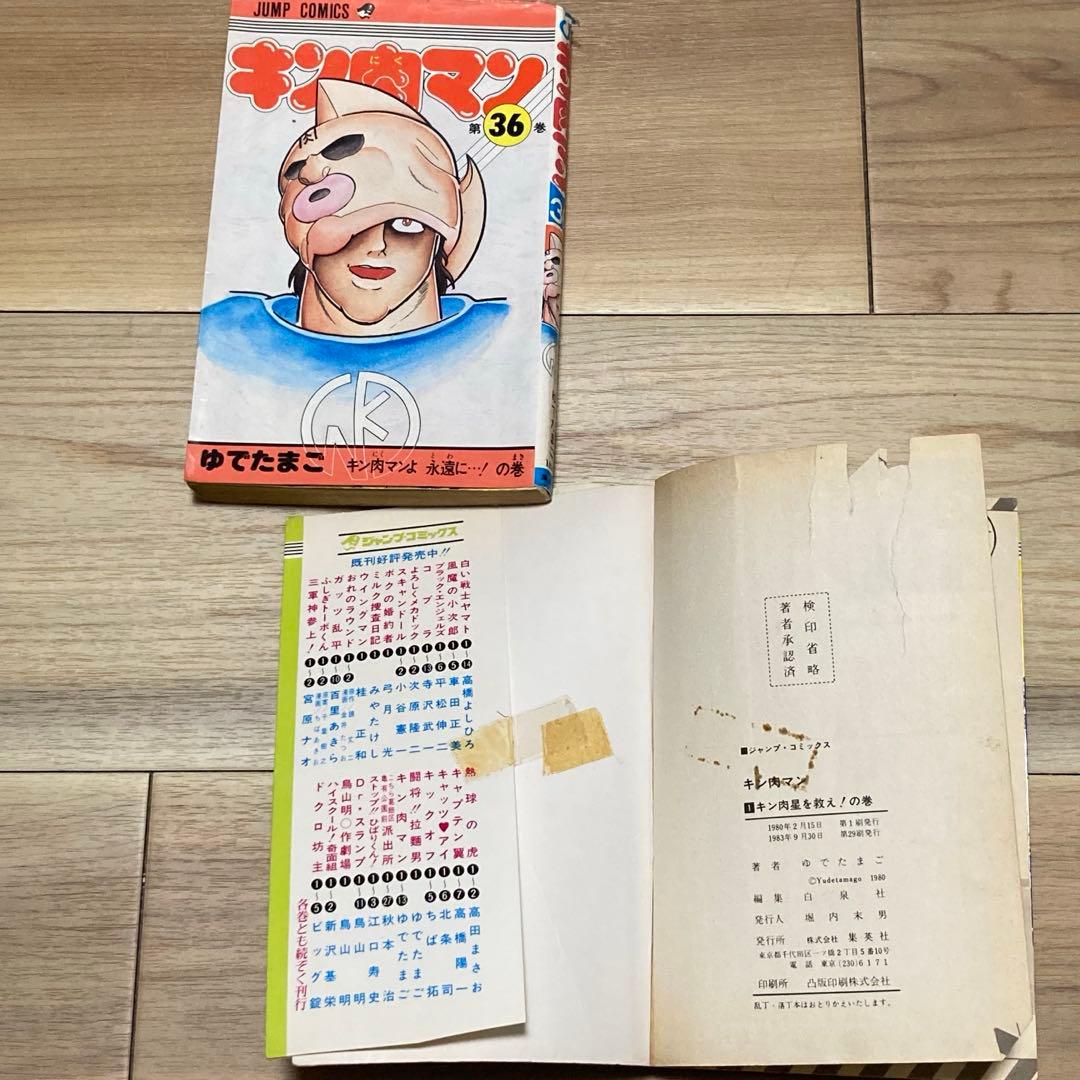 JUMP COMICS
キン肉マン
にく
第36巻
ゆでたまご
キン肉マンよ 永遠に…! の巻
にく とわ まき
ジャンプ・コミックス
既刊好評発売中!!
白い戦士ヤマト ❶〜⓮ 高橋よしひろ
風魔の小次郎 ❶〜❺ 車田正美
ブラック・エンジェルズ ❶〜❻ 平松伸二
コブラ ❶〜⓭ 寺沢武一
よろしくメカドック ❶〜❷ 次原隆二
スキャンドール ❶〜❷ 小谷憲一
ボクの婚約者 ❶ 弓月光
ミルク捜査日記 ❶ みやたけし
ウイングマン ❶ 桂正和
おれのラウンド ❶〜❷
ガッツ乱平 ❶〜❿ 百里あきら
ふしぎトーボくん ❶〜❷ ちばあきお
三軍神参上! ❶〜❷ 宮原ナオ
熱球の虎 ❶〜❷ 高田まさお
キャプテン翼 ❶〜❼ 高橋陽一
キャッツ♥アイ ❶〜❻ 北条司
キックオフ ❶〜❺ ちば拓
闘将!!拉麺男 ❶ ゆでたまご
キン肉マン ❶〜⓭ ゆでたまご
こちら葛飾区亀有公園前派出所 ❶〜㉗ 秋本治
ストップ!!ひばりくん! ❶〜❸ 江口寿史
Dr・スランプ ❶〜⓫ 鳥山明
鳥山明○作劇場 ❶ 鳥山明
ハイスクール!奇面組 ❶〜❷ 新沢基栄
ドクロ坊主 ❶〜❺ ビッグ錠
各巻とも続ぞく刊行
検印省略
著者承認済
■ジャンプ・コミックス
キン肉マン
1キン肉星を救え!の巻
1980年2月15日 第1刷発行
1983年9月30日 第29刷発行
著者 ゆでたまご
©Yudetamago 1980
編集 白泉社
発行人 堀内末男
発行所 株式会社 集英社
東京都千代田区一ツ橋2丁目5番10号
電話 東京(230)6171
印刷所 凸版印刷株式会社
乱丁・落丁本はおとりかえいたします。